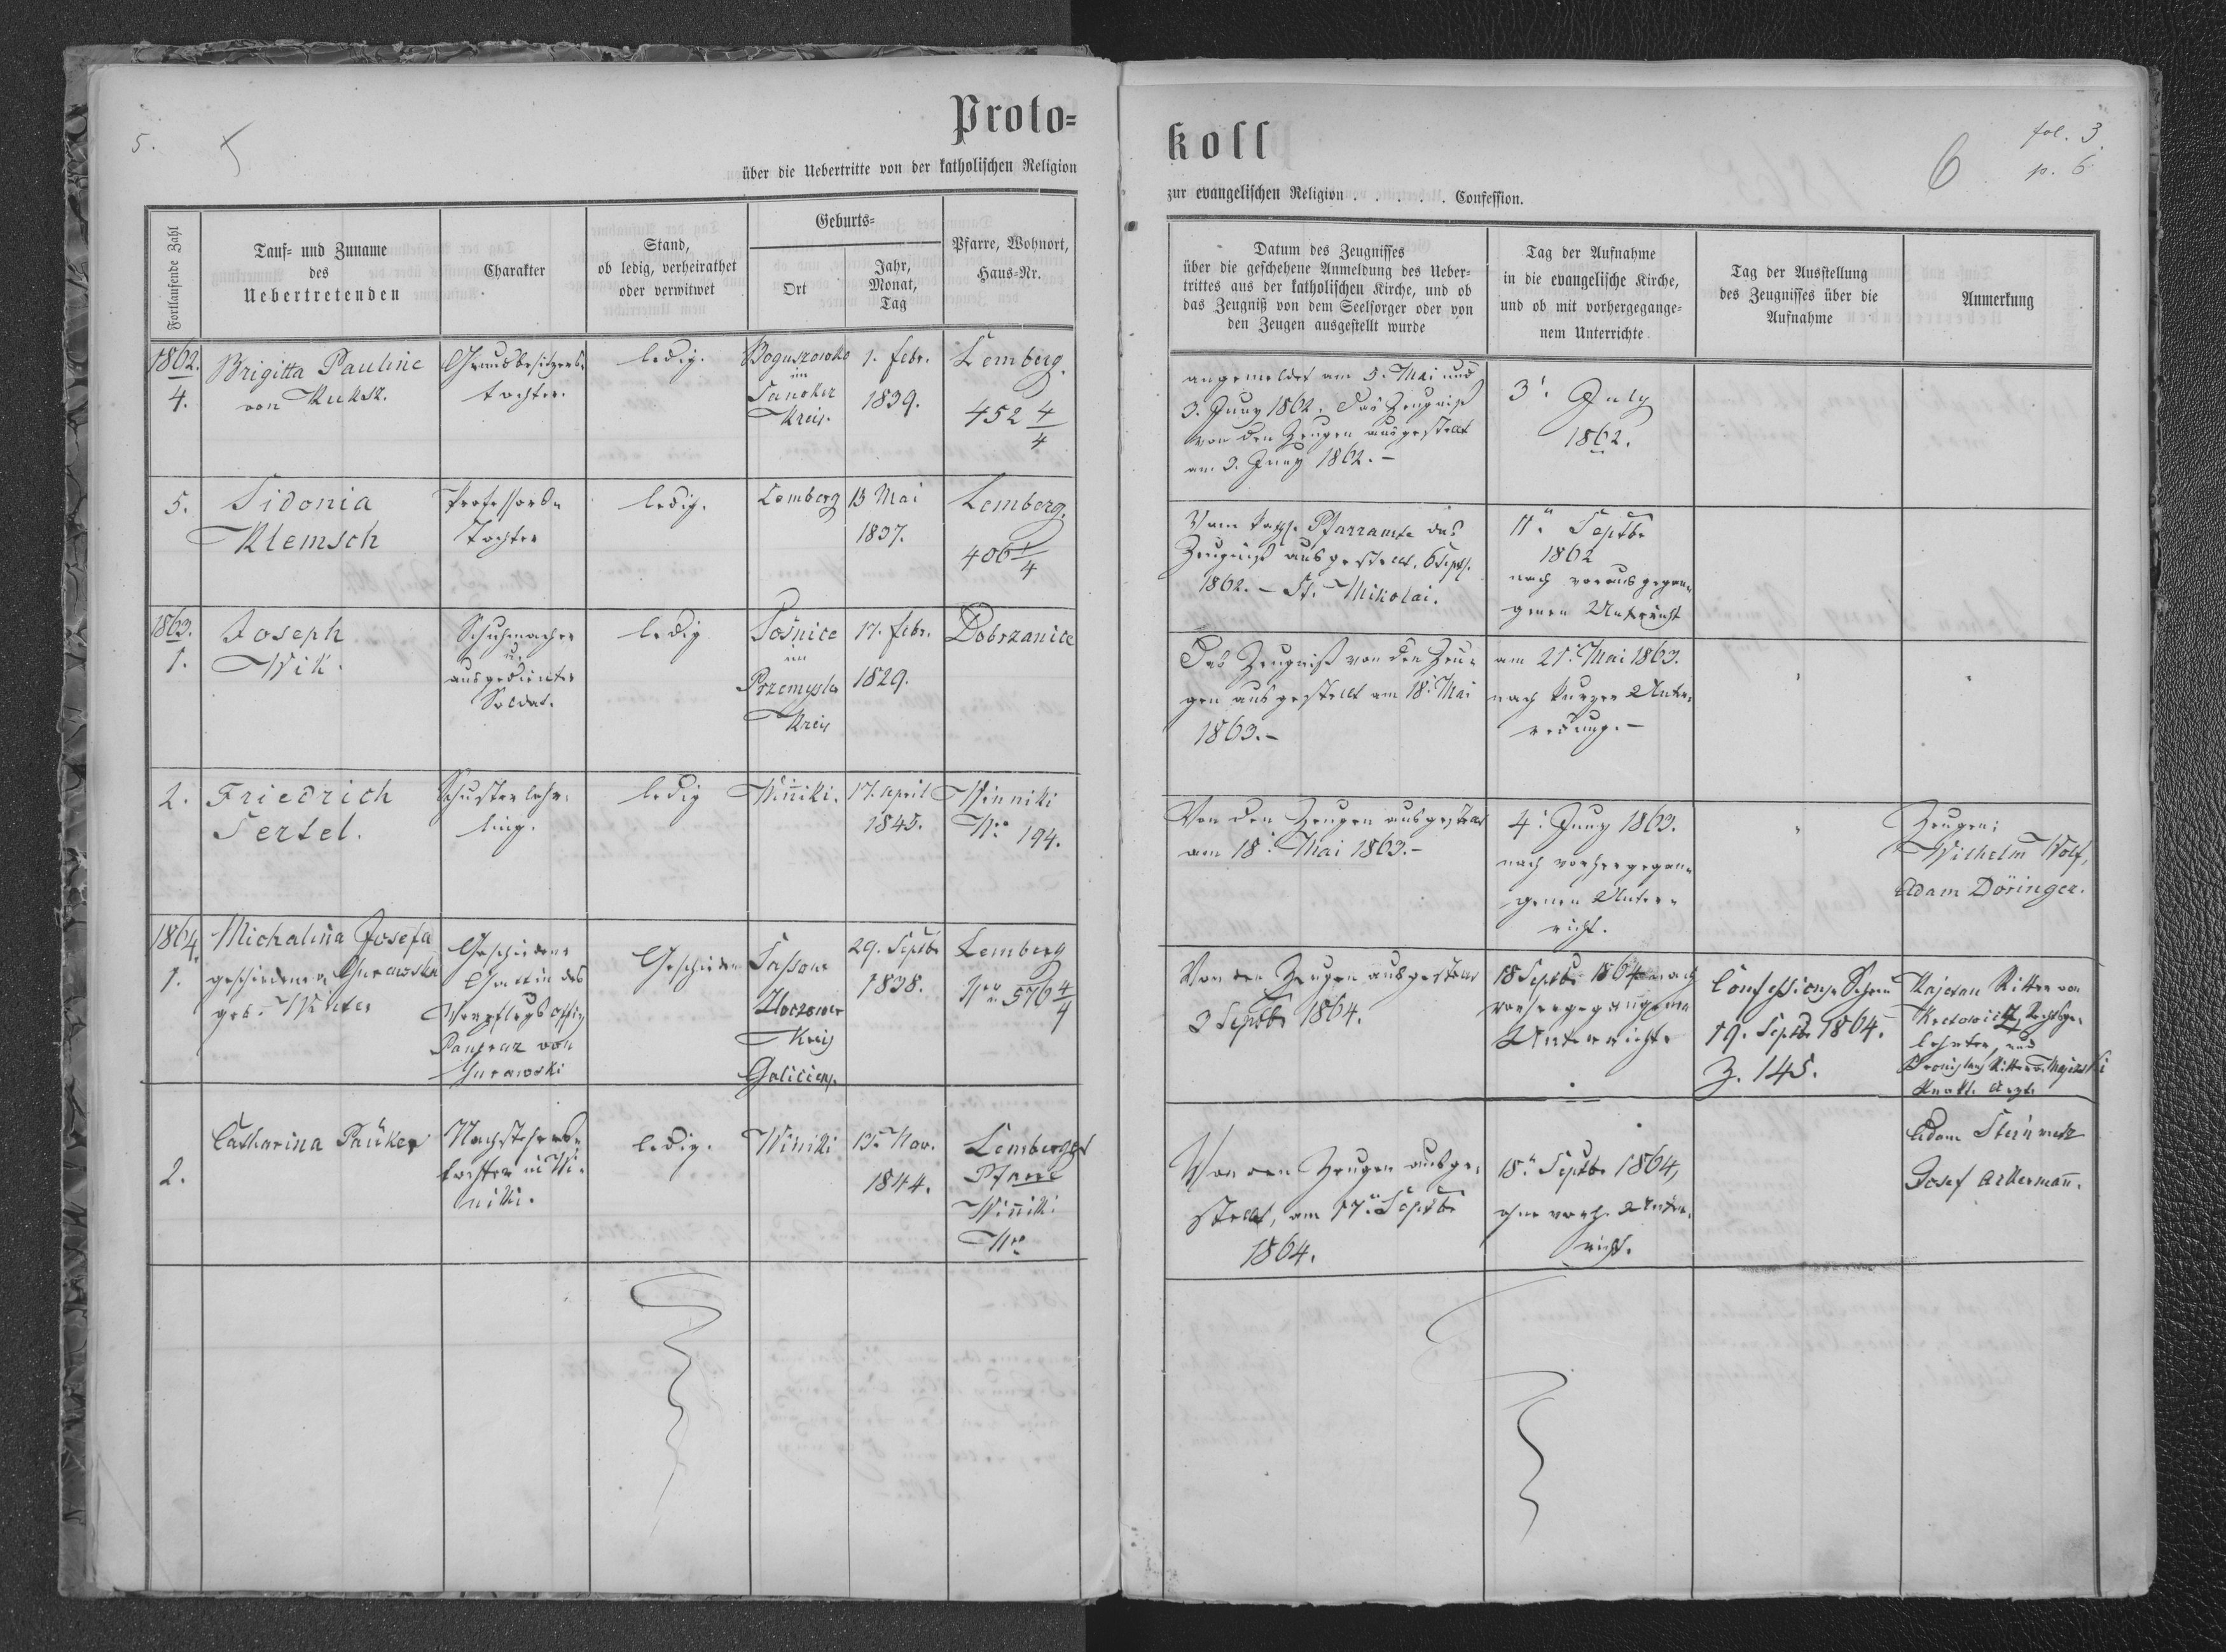 5.
Proto=
über die Uebertritte von der katholischen Religion
Fortlaufende Zahl
Tauf= und Zuname
des
Uebertretenden
Charakter
Stand,
ob ledig, verheirathet
oder verwitwet
Geburts=
Ort
Jahr,
Monat,
Tag
Pfarre, Wohnort,
Haus=Nr.
1862.
4.
Brigitta Pauline
von Kuksz.
tochter.
ledig.
im
Sanoker
Kreis.
1. Febr.
1839.
Lemberg.
452 4/4
5.
Sidonia
Klemsch
Professors=
Tochter
ledig.
Lemberg
13 Mai
1837.
Lemberg.
406 1/4
1863.
1.
Joseph
Wik.
Schuhmacher
u.
ausgedienter
Soldat.
ledig
Sośnice
im
Przemysler
Kreis
17. Febr.
1829.
Dobrzanice
2.
Friedrich
Sertel.
Schusterlehr=
ling.
ledig
Winniki.
17. April
1845.
Winniki
Nro 194.
1864.
1.
Michalina Josefa
geschiedene v.
geb. Winter
Geschiedene
Gattin des
Pankraz von
Geschieden
Sassow
Zloczower
Kreis
Galiciens.
29. Septbr
1838.
Lemberg
Nro 576 4/4
2.
Catharina Pauker
ledig.
Winiki
15. Nov.
1844.
Lemberger
Pfarre
Winniki
Nro
koll
zur evangelischen Religion . . . . . . Confession.
6
fol. 3.
p. 6
Datum des Zeugnisses
über die geschehene Anmeldung des Ueber=
trittes aus der katholischen Kirche, und ob
das Zeugniß von dem Seelsorger oder von
den Zeugen ausgestellt wurde
Tag der Aufnahme
in die evangelische Kirche,
und ob mit vorhergegange=
nem Unterrichte
Tag der Ausstellung
des Zeugnisses über die
Aufnahme
Anmerkung
angemeldet am 5. Mai und
3. Juny 1862. Das Zeugniß
von den Zeugen ausgestellt
am 3. Juny 1862. –
3. July
1862.
Vom kathl. Pfarramte das
Zeugniß ausgestellt. 6 Septbr.
1862. – St. Nikolai.
11. Septbr
1862
nach vorausgegan=
genen Unterricht
Das Zeugniß von den Zeu=
gen ausgestellt am 18. Mai
1863. –
am 21. Mai 1863.
nach kurzer Unter=
redung. –
Von den Zeugen ausgestellt
am 18. Mai 1863. –
4. Juny 1863.
nach vorhergegan=
genen Unter=
richt.
Zeugen:
Wilhelm Wolf,
Adam Döringer.
Von den Zeugen ausgestellt
3 Septbr 1864.
18 Septbr 1864 nach
vorhergegangenem
Unterrichte
Confessions Schein
19. Septbr 1864.
Z. 145.
Kajetan Ritter von
und
Von den Zeugen ausge=
stellt, am 17. Septbr
1864.
18. Septbr 1864,
ohne vorh. Unter=
richt.
Adam Steinmetz
Josef Ackermañ.